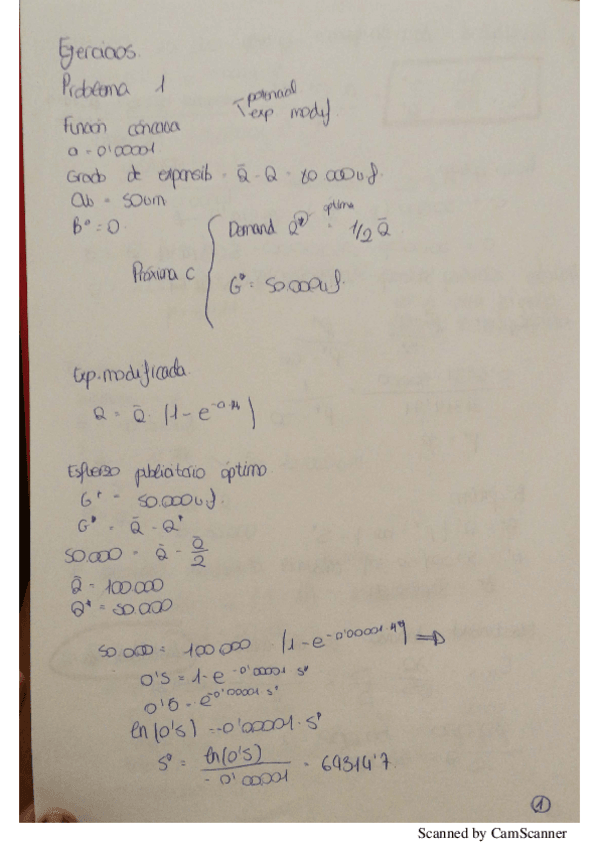 Ejercicios.
Problema 1
Función cóncava
potencial
exp modif.
a = 0'00001
Grado de expansib = Q̄ - Q = 10 000 u.f.
Cub = 50um
B° = 0.
Próxima C
Demand Q* óptima = 1/2 Q̄.
G* = 50.000 u.f.
Exp. modificada
Q = Q̄ · (1 - e
Esfuerzo publicitario óptimo
G* = 50.000 u.f.
G* = Q̄ - Q*
50.000 = Q̄ - Q̄/2
Q̄ = 100.000
Q* = 50.000
50.000 = 100.000 (1 - e^-0'00001·s*) ⇒
0's = 1 - e^-0'00001 s*
0'5 = e^-0'00001 s*
ln(0's) = -0'00001 · s*
s* = ln(0's) / -0'00001 = 69314'7
1
Scanned by CamScanner